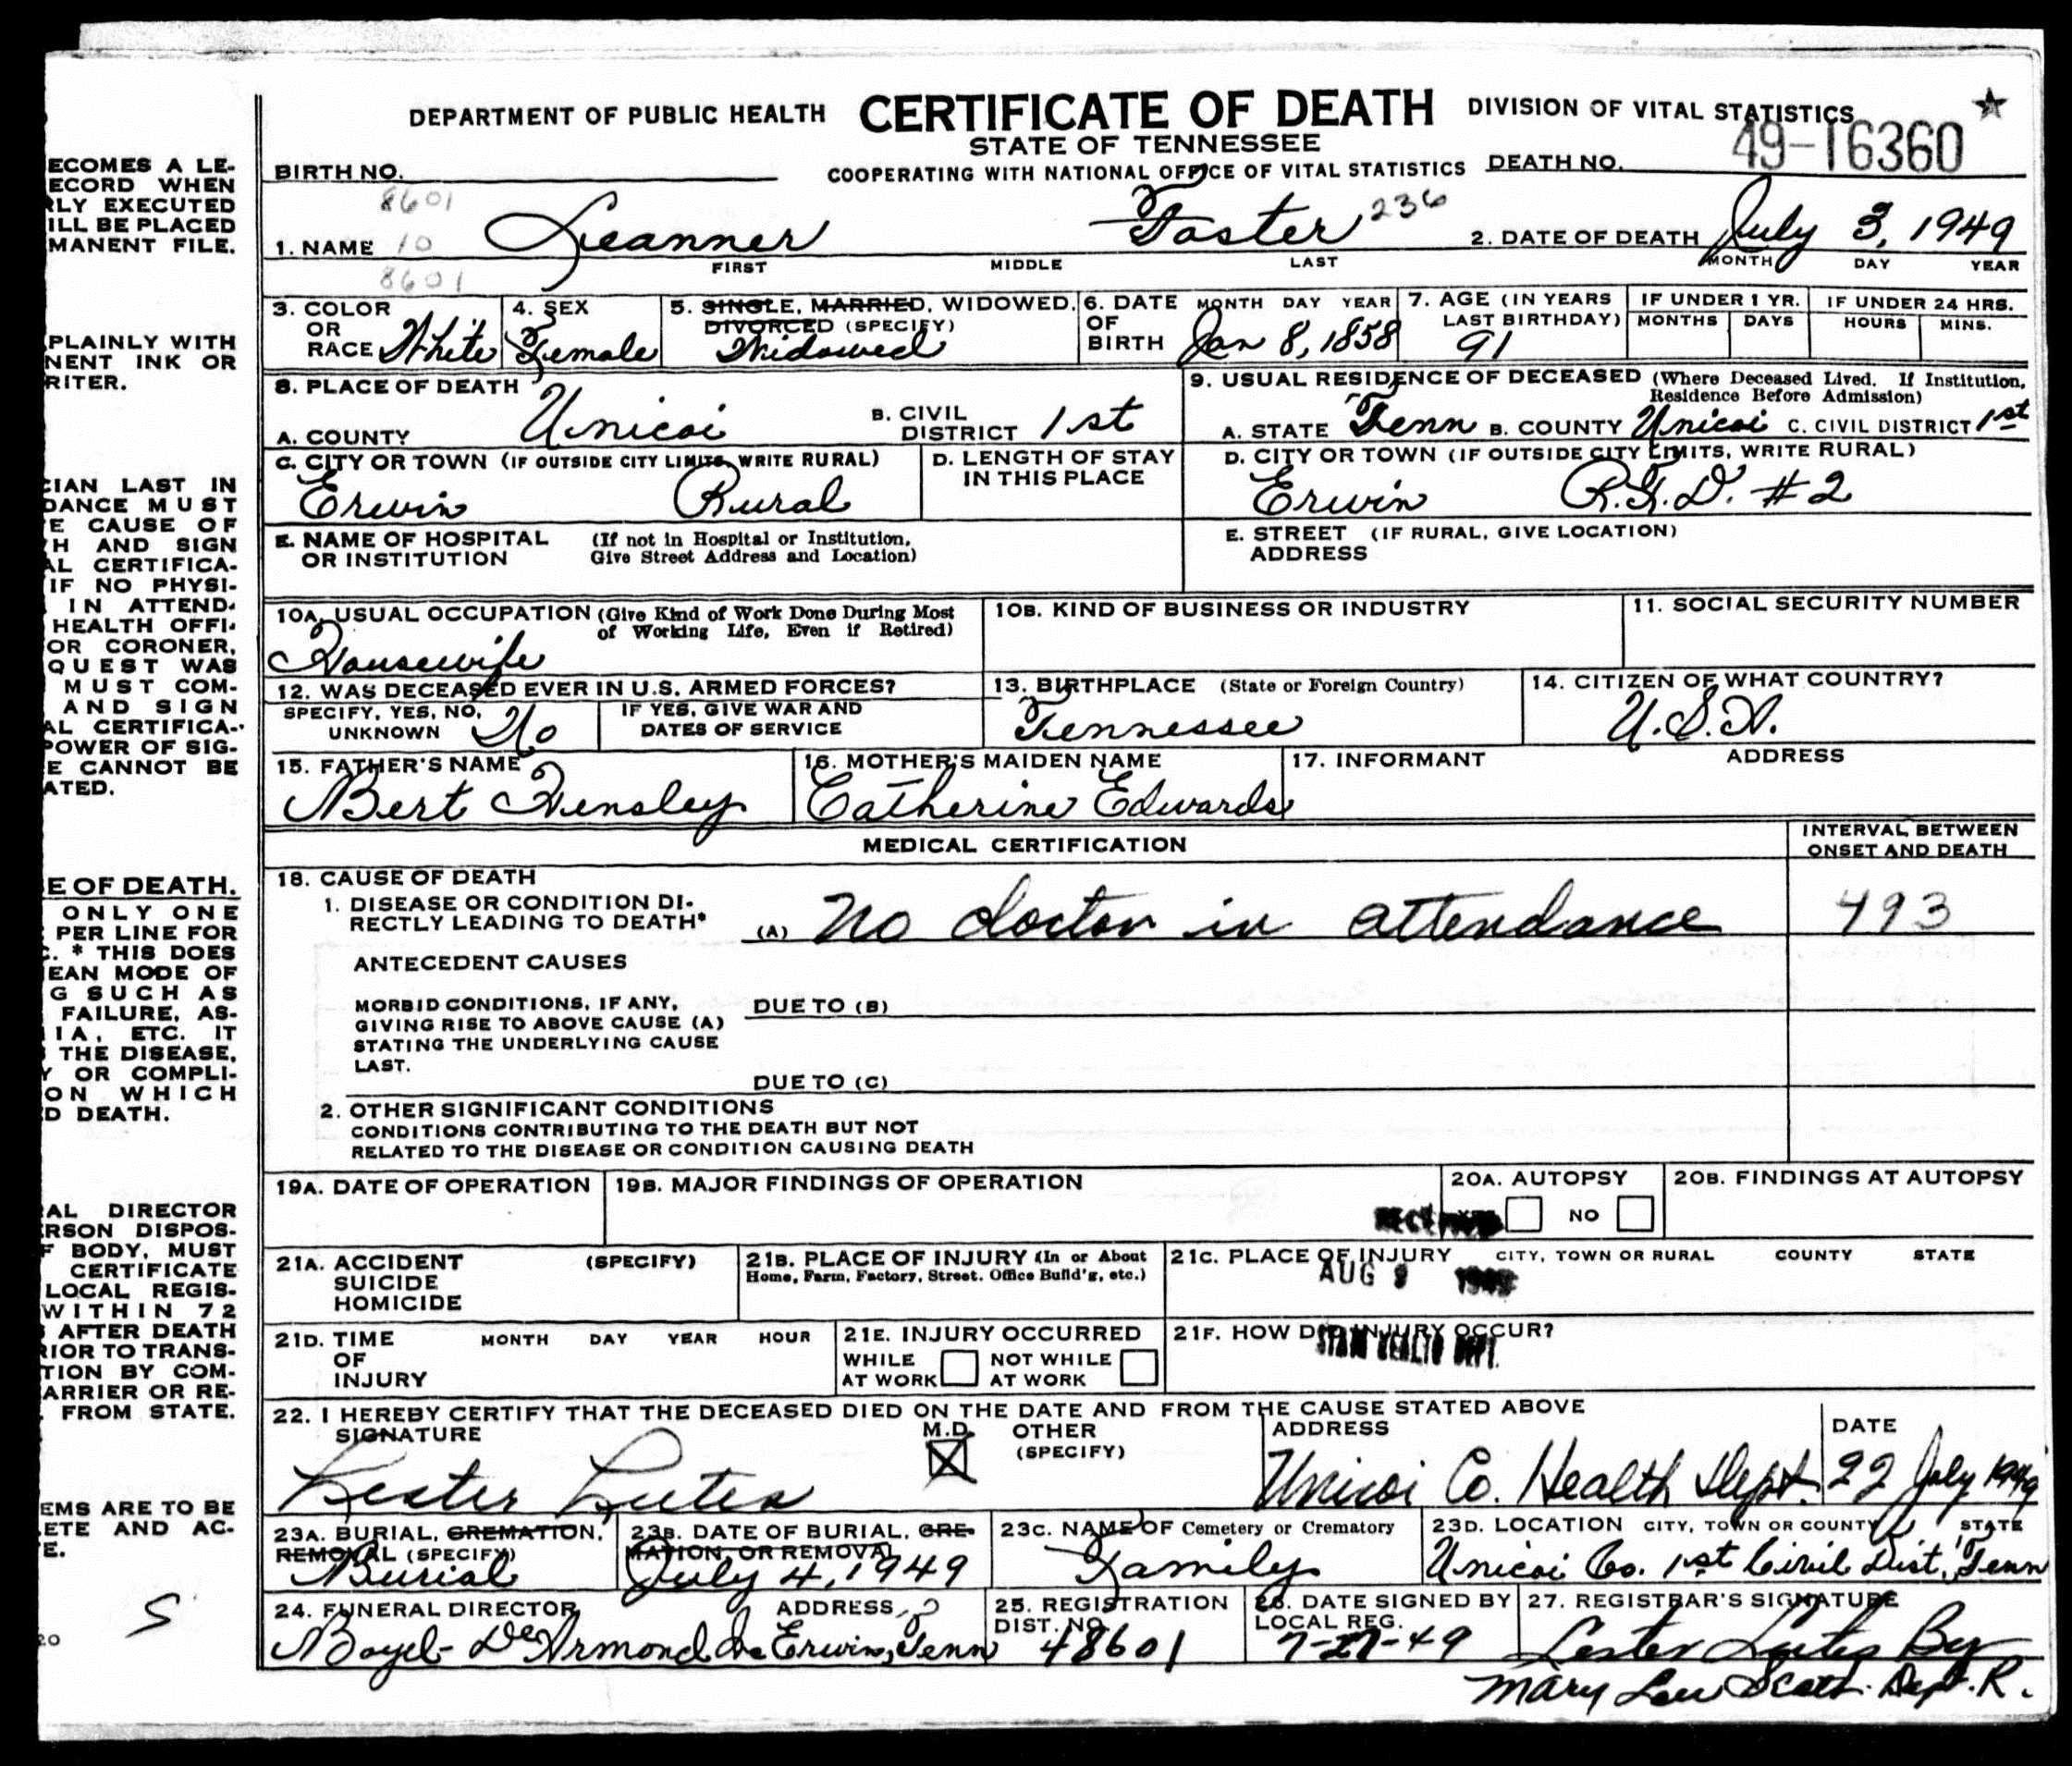 DEPARTMENT OF PUBLIC HEALTH CERTIFICATE OF DEATH DIVISION OF VITAL STATISTICS
STATE OF TENNESSEE
BIRTH NO. COOPERATING WITH NATIONAL OFFICE OF VITAL STATISTICS DEATH NO. 49-16360
8601
1. NAME 10 Leanner Foster 236 2. DATE OF DEATH July 3, 1949
8601 FIRST MIDDLE LAST MONTH DAY YEAR
3. COLOR OR RACE White 4. SEX Female 5. SINGLE, MARRIED, WIDOWED, DIVORCED (SPECIFY) Widowed 6. DATE OF BIRTH MONTH DAY YEAR Jan 8, 1858 7. AGE (IN YEARS LAST BIRTHDAY) 91 IF UNDER 1 YR. MONTHS DAYS IF UNDER 24 HRS. HOURS MINS.
8. PLACE OF DEATH
A. COUNTY Unicoi B. CIVIL DISTRICT 1st
9. USUAL RESIDENCE OF DECEASED (Where Deceased Lived. If Institution, Residence Before Admission)
A. STATE Tenn B. COUNTY Unicoi C. CIVIL DISTRICT 1st
C. CITY OR TOWN (IF OUTSIDE CITY LIMITS, WRITE RURAL) Erwin Rural D. LENGTH OF STAY IN THIS PLACE
D. CITY OR TOWN (IF OUTSIDE CITY LIMITS, WRITE RURAL) Erwin R.F.D. #2
E. NAME OF HOSPITAL OR INSTITUTION (If not in Hospital or Institution, Give Street Address and Location)
E. STREET ADDRESS (IF RURAL, GIVE LOCATION)
10A. USUAL OCCUPATION (Give Kind of Work Done During Most of Working Life, Even if Retired) Housewife
10B. KIND OF BUSINESS OR INDUSTRY
11. SOCIAL SECURITY NUMBER
12. WAS DECEASED EVER IN U.S. ARMED FORCES?
SPECIFY, YES, NO, UNKNOWN No IF YES, GIVE WAR AND DATES OF SERVICE
13. BIRTHPLACE (State or Foreign Country) Tennessee
14. CITIZEN OF WHAT COUNTRY? U.S.A.
15. FATHER'S NAME Bert Hensley
16. MOTHER'S MAIDEN NAME Catherine Edwards
17. INFORMANT ADDRESS
MEDICAL CERTIFICATION INTERVAL BETWEEN ONSET AND DEATH
18. CAUSE OF DEATH
1. DISEASE OR CONDITION DIRECTLY LEADING TO DEATH* (A) No doctor in attendance 493
ANTECEDENT CAUSES
MORBID CONDITIONS, IF ANY, GIVING RISE TO ABOVE CAUSE (A) STATING THE UNDERLYING CAUSE LAST.
DUE TO (B)
DUE TO (C)
2. OTHER SIGNIFICANT CONDITIONS
CONDITIONS CONTRIBUTING TO THE DEATH BUT NOT
RELATED TO THE DISEASE OR CONDITION CAUSING DEATH
19A. DATE OF OPERATION 19B. MAJOR FINDINGS OF OPERATION 20A. AUTOPSY NO 20B. FINDINGS AT AUTOPSY
21A. ACCIDENT SUICIDE HOMICIDE (SPECIFY)
21B. PLACE OF INJURY (In or About Home, Farm, Factory, Street, Office Build'g, etc.)
21C. PLACE OF INJURY CITY, TOWN OR RURAL COUNTY STATE
AUG
21D. TIME OF INJURY MONTH DAY YEAR HOUR
21E. INJURY OCCURRED WHILE AT WORK NOT WHILE AT WORK
21F. HOW DID INJURY OCCUR?
22. I HEREBY CERTIFY THAT THE DECEASED DIED ON THE DATE AND FROM THE CAUSE STATED ABOVE
SIGNATURE M.D. OTHER (SPECIFY) ADDRESS DATE
Lester Lutes X Unicoi Co. Health Dept. 22 July 1949
23A. BURIAL, CREMATION, REMOVAL (SPECIFY) Burial
23B. DATE OF BURIAL, CREMATION, OR REMOVAL July 4, 1949
23C. NAME OF Cemetery or Crematory Family
23D. LOCATION CITY, TOWN OR COUNTY STATE Unicoi Co. 1st Civil Dist, Tenn
24. FUNERAL DIRECTOR ADDRESS Boyd-DeArmond Inc Erwin, Tenn
25. REGISTRATION DIST. NO. 48601
26. DATE SIGNED BY LOCAL REG. 7-27-49
27. REGISTRAR'S SIGNATURE Lester Lutes By
Mary Lou Scott. Dept. R.
ECOMES A LE-
ECORD WHEN
RLY EXECUTED
ILL BE PLACED
MANENT FILE.
PLAINLY WITH
NENT INK OR
RITER.
CIAN LAST IN
DANCE MUST
E CAUSE OF
H AND SIGN
AL CERTIFICA-
IF NO PHYSI-
IN ATTEND-
HEALTH OFFI-
OR CORONER,
QUEST WAS
MUST COM-
AND SIGN
AL CERTIFICA-
POWER OF SIG-
E CANNOT BE
ATED.
E OF DEATH.
ONLY ONE
PER LINE FOR
C. * THIS DOES
EAN MODE OF
G SUCH AS
FAILURE, AS-
IA, ETC. IT
THE DISEASE,
Y OR COMPLI-
ON WHICH
D DEATH.
AL DIRECTOR
ERSON DISPOS-
F BODY, MUST
CERTIFICATE
LOCAL REGIS-
WITHIN 72
AFTER DEATH
RIOR TO TRANS-
TION BY COM-
ARRIER OR RE-
FROM STATE.
EMS ARE TO BE
ETE AND AC-
E.
S
20